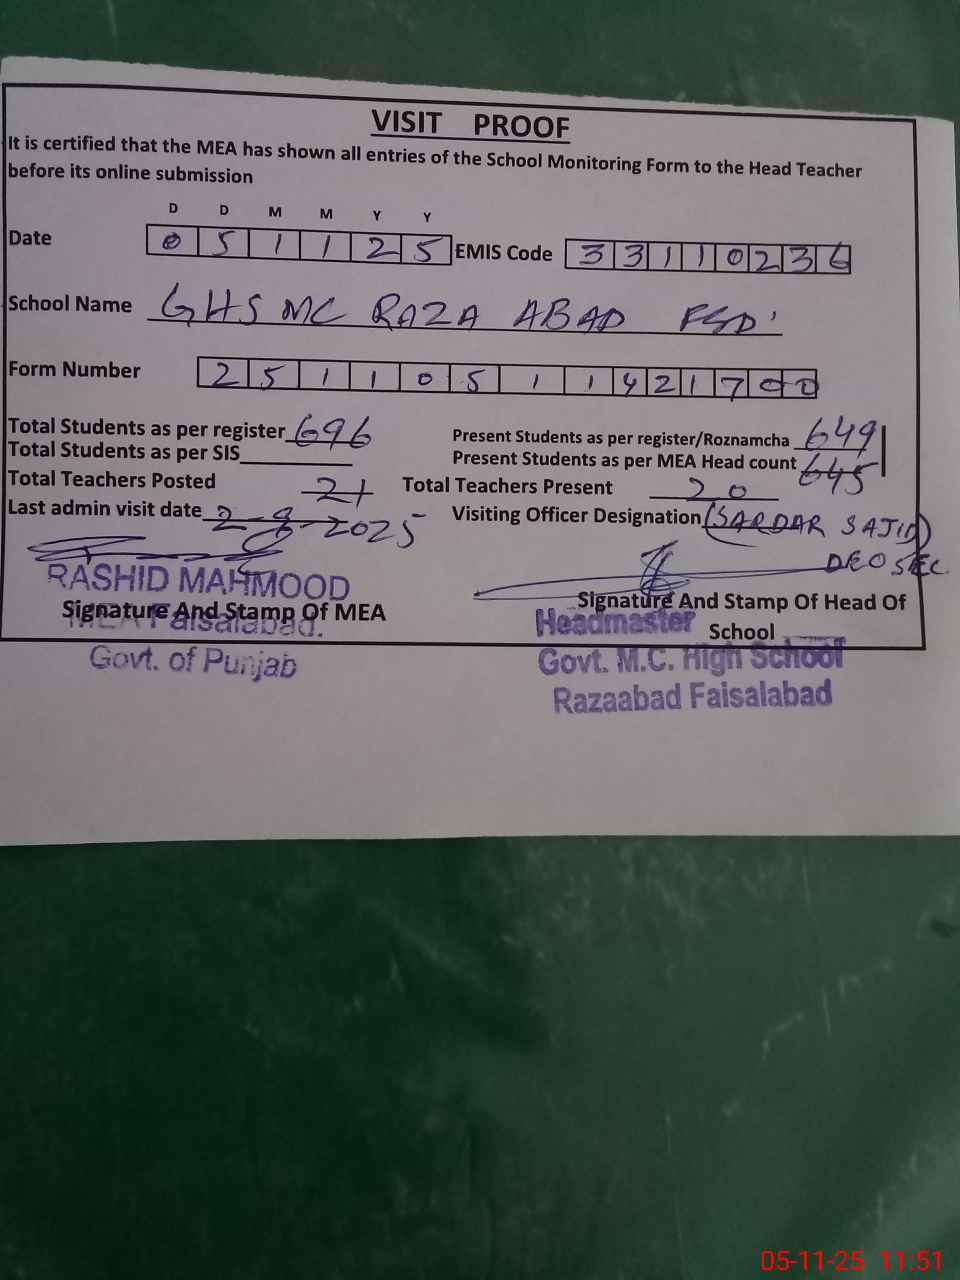 VISIT PROOF
It is certified that the MEA has shown all entries of the School Monitoring Form to the Head Teacher
before its online submission
D D M M Y Y
Date 0 5 1 1 2 5 EMIS Code 3 3 1 1 0 2 3 6
School Name GHS MC RAZA ABAD FSD
Form Number 2 5 1 1 0 5 1 1 4 2 1 7 0 0
Total Students as per register 696 Present Students as per register/Roznamcha 649
Total Students as per SIS Present Students as per MEA Head count 645
Total Teachers Posted 21 Total Teachers Present 20
Last admin visit date 2-8-2025 Visiting Officer Designation (SARDAR SAJID)
DEO SEC
RASHID MAHMOOD
Signature And Stamp Of MEA Signature And Stamp Of Head Of
School
MEA Faisalabad. Headmaster
Govt. of Punjab Govt. M.C. High School
Razaabad Faisalabad
05-11-25 11:51